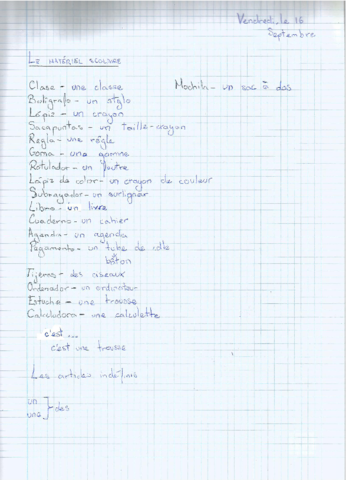 Vendredi, le 16
Septembre
LE MATÉRIEL SCOLAIRE
Clase - une classe
Mochila - un sac à dos
Bolígrafo - un stylo
Lápiz - un crayon
Sacapuntas - un taille-crayon
Regla - une règle
Goma - une gomme
Rotulador - un feutre
Lápiz de color - un crayon de couleur
Subrayador - un surligner
Libro - un livre
Cuaderno - un cahier
Agenda - un agenda
Pegamento - un tube de colle
bâton
Tijeras - des ciseaux
Ordenador - un ordinateur
Estuche - une trousse
Calculadora - une calculette
c'est...
c'est une trousse
Les articles indéfinis
un
une } des